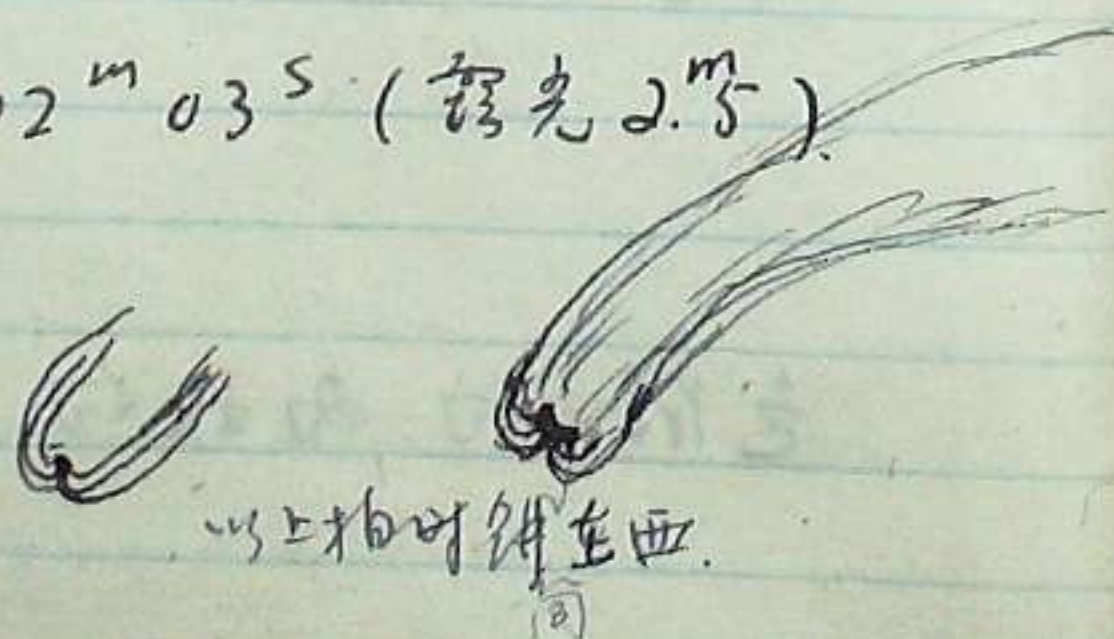 02ᵐ 03ˢ (露光 2.ᵐ5).
以上拍时缝东西.